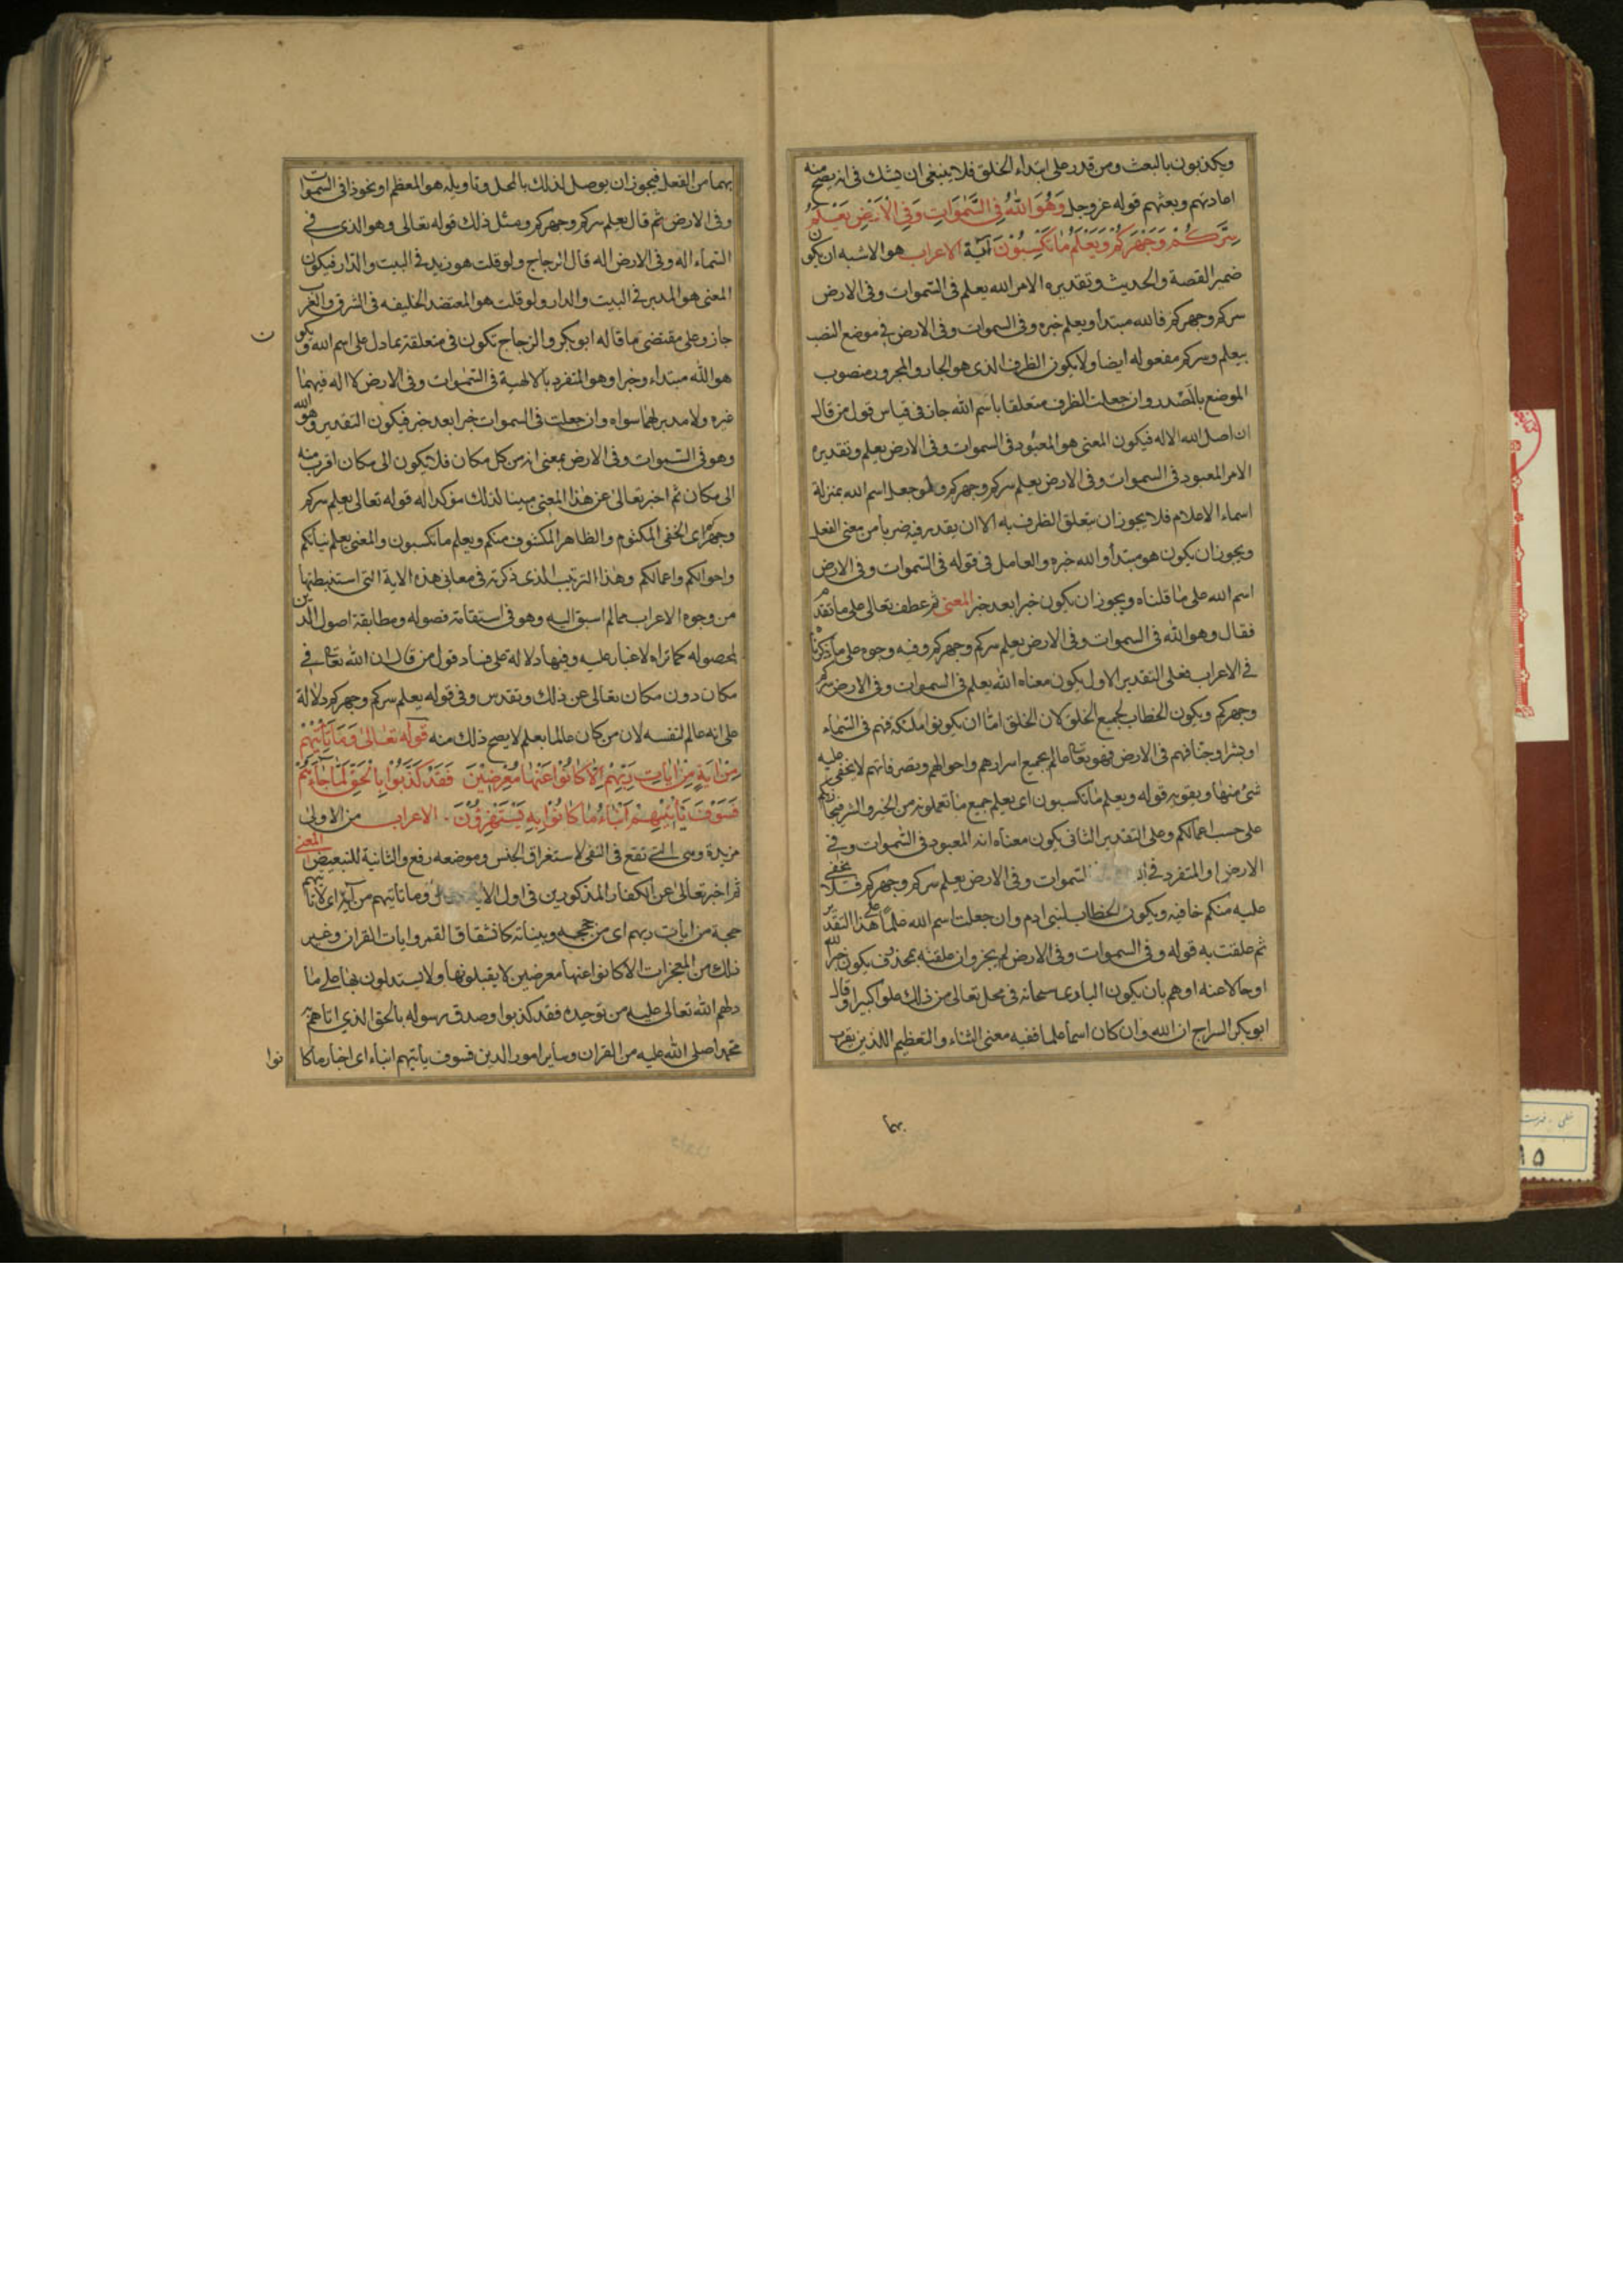 ويكذبون بالبعث ومن قدر على ابتداء الخلق فلا ينبغي ان يشك في انه يصح منه
اعادتهم وبعثهم قوله عز وجل وَهُوَ اللهُ فِي السَّمٰوَاتِ وَفِي الْاَرْضِ يَعْلَمُ
سِرَّكُمْ وَجَهْرَكُمْ وَيَعْلَمُ مَا تَكْسِبُوْنَ آية الاعراب هو الاشبه ان يكون
ضمير القصة والحديث وتقديره الامر الله يعلم في السموات وفي الارض
سركم وجهركم فالله مبتدأ ويعلم خبره وفي السموات وفي الارض في موضع النصب
بيعلم وسركم مفعوله ايضا ولا يكون الظرف الذي هو الجار والمجرور منصوب
الموضع بالمصدر وان جعلت الظرف متعلقا باسم الله جاز في قياس قول من قال
ان اصل الله الاله فيكون المعنى هو المعبود في السموات وفي الارض يعلم وتقديره
الامر المعبود في السموات وفي الارض يعلم سركم وجهركم ولو جعل اسم الله بمنزلة
اسماء الاعلام فلا يجوز ان يتعلق الظرف به الا ان يقدر فيه ضربا من معنى الفعل
ويجوز ان يكون هو مبتدأ والله خبره والعامل في قوله في السموات وفي الارض
اسم الله على ما قلناه ويجوز ان يكون خبرا بعد خبر المعنى ثم عطف تعالى على ما تقدم
فقال وهو الله في السموات وفي الارض يعلم سركم وجهركم وفيه وجوه على ما ذكرناه
في الاعراب فعلى التقدير الاول يكون معناه الله يعلم في السموات وفي الارض سركم
وجهركم ويكون الخطاب لجميع الخلق لان الخلق اما ان يكونوا ملئكة فهم في السماء
او بشرا وجنا فهم في الارض فهو تعا عالم بجميع اسرارهم واحوالهم وتصرفاتهم لا يخفى عليه
شئ منها ويقويه قوله ويعلم ما تكسبون اي يعلم جميع ما تعملونه من الخير والشر فيجازيكم
على حسب اعمالكم وعلى التقدير الثاني يكون معناه انه المعبود في السموات وفي
الارض او المتفرد في السموات وفي الارض يعلم سركم وجهركم فلا يخفى
عليه منكم خافية ويكون الخطاب لبني ادم وان جعلت اسم الله علما على هذا التقدير
ثم علقت به قوله وفي السموات وفي الارض لم يجز وان علقته بمحذوف يكون خبر الله
او حالا عنه اوهم بان يكون الباري سبحانه في محل تعالى من ذلك علوا كبيرا وقال
ابو بكر السراج ان الله وان كان اسما علما ففيه معنى الثناء والتعظيم اللذين يقرب
بهما
بهما من الفعل فيجوز ان يوصل لذلك بالمحل وتاويله هو المعظم او نحو ذا في السموات
وفي الارض ثم قال يعلم سركم وجهركم ومثل ذلك قوله تعالى وهو الذي في
السماء اله وفي الارض اله قال الزجاج ولو قلت هو زيد في البيت والدار فيكون
المعنى هو المدبر في البيت والدار ولو قلت هو المعتضد الخليفه في الشرق والغرب
جاز وعلى مقتضى ما قاله ابو بكر والزجاج تكون في متعلقة بما دل على اسم الله ويكون
هو الله مبتداء وخبرا وهو المتفرد بالالهية في السموات وفي الارض لا اله فيهما
غيره ولا مدبر لهما سواه وان جعلت في السموات خبرا بعد خبر فيكون التقدير وهو الله
وهو في السموات وفي الارض بمعنى انه من كل مكان فلا يكون الى مكان اقرب منه
الى مكان ثم اخبر تعالى عن هذا المعنى مبينا لذلك مؤكدا له قوله تعالى يعلم سركم
وجهركم اي الخفي المكتوم والظاهر المكشوف منكم ويعلم ما تكسبون والمعنى يعلم نياتكم
واحوالكم واعمالكم وهذا الترتيب الذي ذكرته في معاني هذه الاية التي استنبطتها
من وجوه الاعراب مما لم اسبق اليه وهو في استقامة فصوله ومطابقة اصول الدين
لمحصوله كما تراه لا غبار عليه وفيها دلالة على فساد قول من قال ان الله تعالى في
مكان دون مكان تعالى عن ذلك وتقدس وفي قوله يعلم سركم وجهركم دلالة
على انه عالم لنفسه لان من كان عالما بعلم لا يصح ذلك منه قوله تعالى وَمَا تَأْتِيْهِمْ
مِنْ ايَةٍ مِنْ ايَاتِ رَبِّهِمْ اِلَّا كَانُوْا عَنْهَا مُعْرِضِيْنَ فَقَدْ كَذَّبُوْا بِالْحَقِّ لَمَّا جَاءَهُمْ
فَسَوْفَ يَأْتِيْهِمْ اَنْبَاءُ مَا كَانُوْا بِهِ يَسْتَهْزِؤُنَ الاعراب من الاولى
مزيدة وهي التي تقع في النفي لاستغراق الجنس وموضعه رفع والثانية للتبعيض المعنى
ثم اخبر تعالى عن الكفار المذكورين في اول الاية وما تاتيهم من آية اي لا تاتيهم
حجة من ايات ربهم اي من حججه وبيناته كانشقاق القمر وايات القران وغير
ذلك من المعجزات الا كانوا عنها معرضين لا يقبلونها ولا يستدلون بها على ما
دلهم الله تعالى عليه من توحيده فقد كذبوا وصدق رسوله بالحق الذي اتاهم به
محمد صلى الله عليه من القران وساير امور الدين فسوف ياتيهم انباء اي اخبار ما كا
نوا